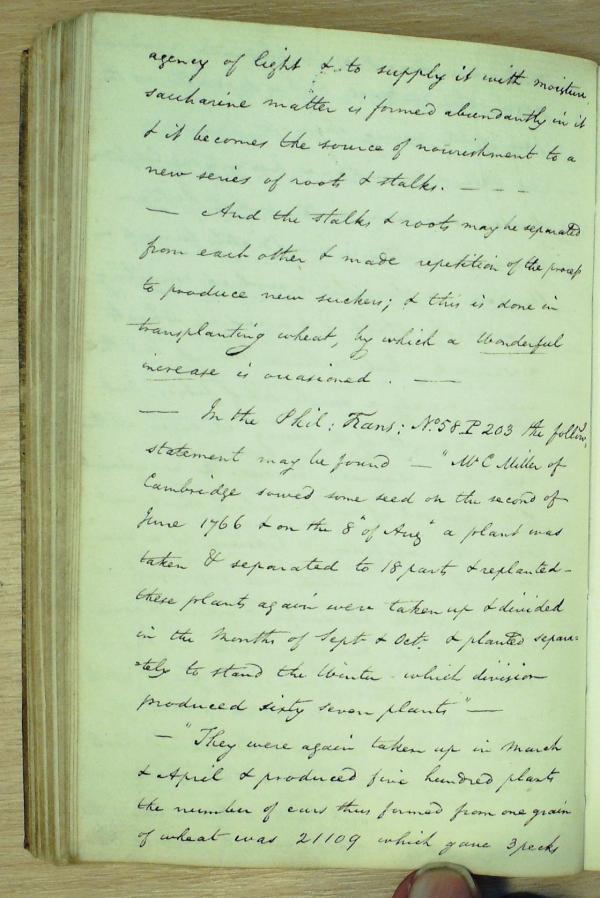 agency of light & to supply it with moisture,
saccharine matter is formed abundantly in it
& it becomes the source of nourishment to a
new series of roots & stalks. — - - -
— And the stalks & roots may be separated
from each other & made repetition of the process
to produce new suckers; & this is done in
transplanting wheat, by which a Wonderful
increase is occasioned . —
— In the Phil: Trans: No 58. P 203 the follow:
statement may be found — "Mr C Miller of
Cambridge sowed some seed on the second of
June 1766 & on the 8th of Augt a plant was
taken & separated to 18 parts & replanted -
these plants again were taken up & divided
in the Months of Sept & Oct. & planted separa=
=tely to stand the Winter - which division
produced sixty seven plants" —
— "They were again taken up in March
& April & produced five hundred plants
the number of ears thus formed from one grain
of wheat was 21109 which gave 3 pecks